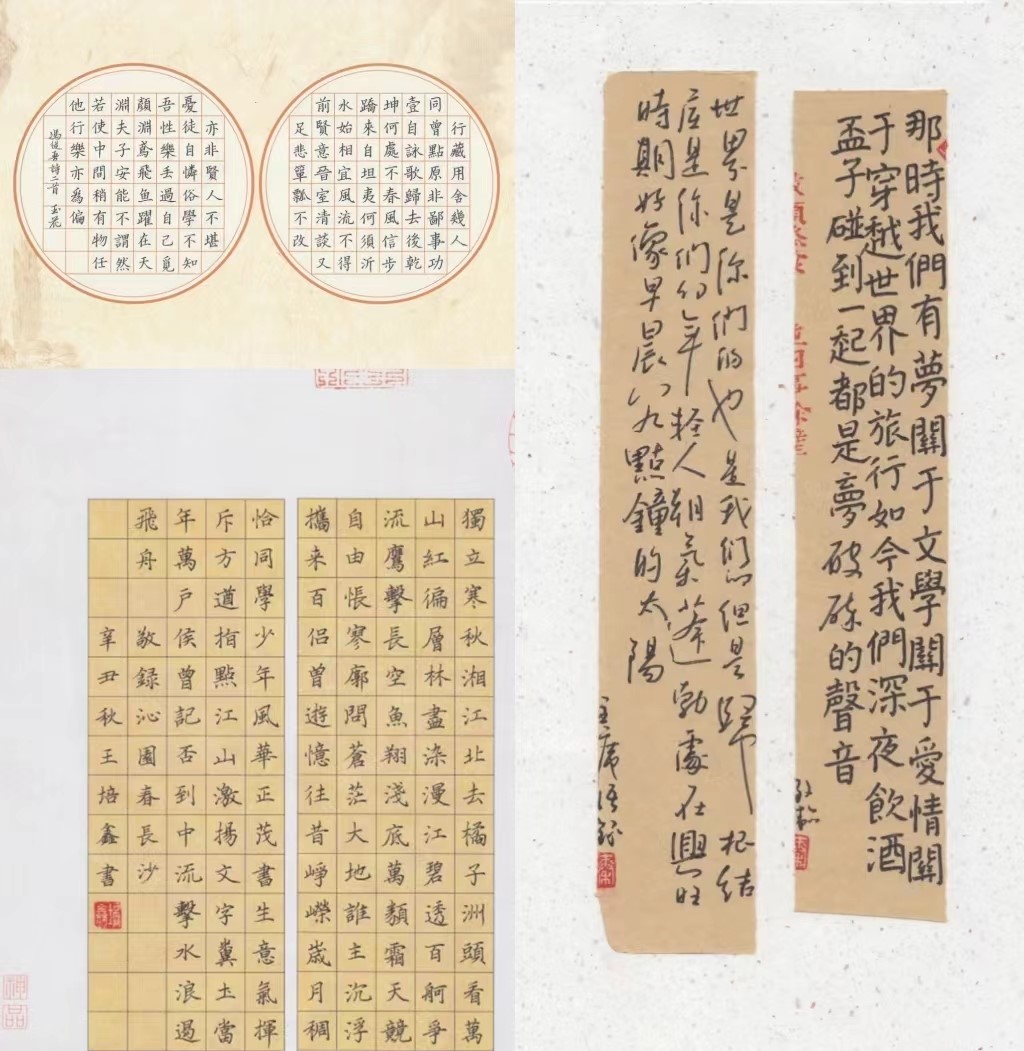 行藏用舍幾人
同曾點原非鄙事功
壹自詠歌歸去後乾
坤何處不春風信步
蹻來自坦夷何須沂
水始相宜風流不得
前賢意晉室清談又
足悲簞瓢不改
亦非賢人不堪
憂徒自憐俗學不知
吾性樂丢過自己覓
顏淵鳶飛鱼躍在天
淵夫子安能不謂然
若使中間稍有物任
他行樂亦爲偏
馮從吾詩二首
獨立寒秋湘江北去橘子洲頭看萬
山紅徧層林盡染漫江碧透百舸爭
流鷹擊長空魚翔淺底萬類霜天競
自由悵寥廓問蒼茫大地誰主沉浮
攜来百侣曾遊憶往昔崢嶸崴月稠
恰同學少年風華正茂書生意氣揮
斥方遒指點江山激揚文字糞土當
年萬戶侯曾記否到中流擊水浪遏
飛舟 敬録沁園春長沙
辛丑秋王培鑫書
世界是你們的也是我们的但是歸根结
底是你们的年轻人朝氣蓬勃處在興旺
時期好像早晨八九點鐘的太陽
主席语録
那時我們有夢關于文學關于愛情關
于穿越世界的旅行如今我們深夜飲酒
盃子碰到一起都是夢破碎的聲音